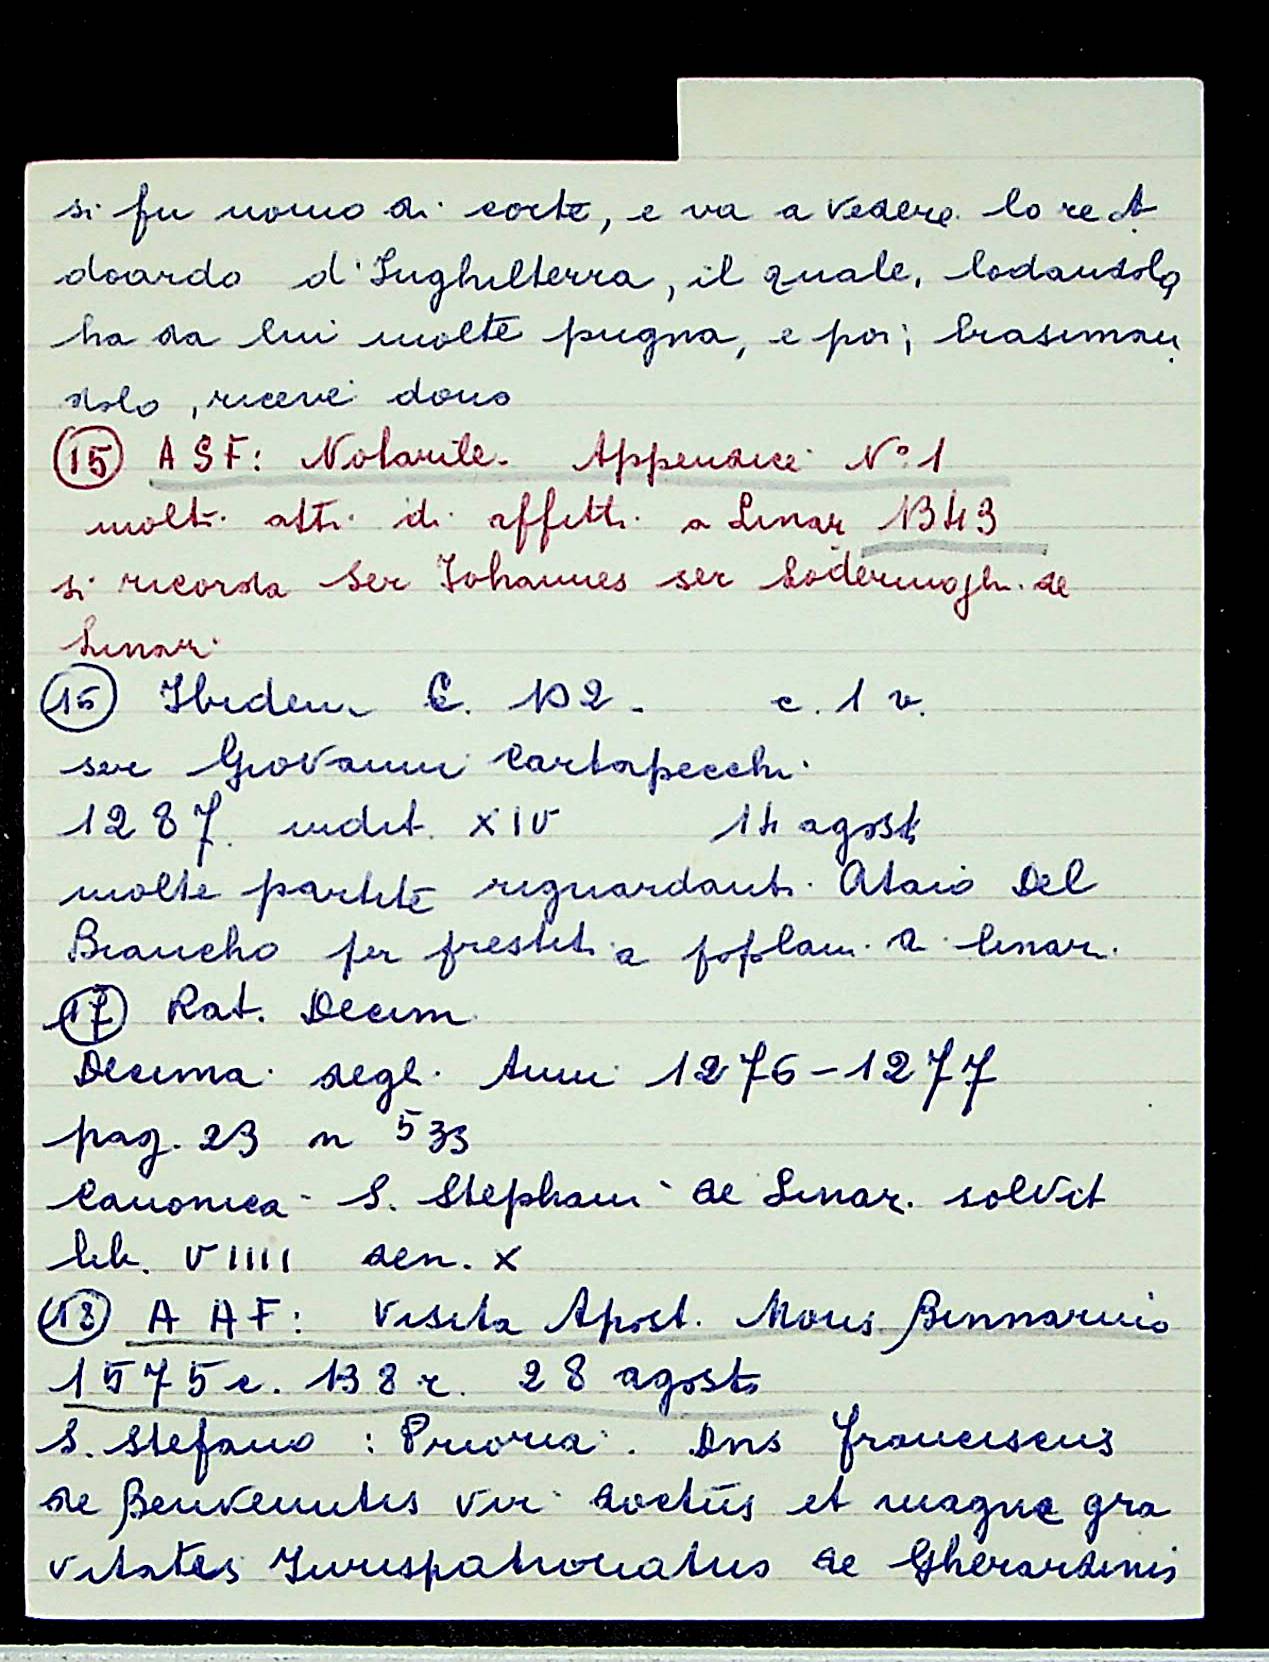 si fu uomo di corte, e va a vedere lo re A
doardo d'Inghilterra, il quale, lodandolo
ha da lui molte pugna, e poi, biasiman
dolo, riceve dono
(15) ASF: Notarile. Appendice N° 1
molti atti di affitti a Linari 1343
si ricorda Ser Iohannes ser de
Linari
(16) Ibidem C. 102. c. 1 v.
ser Giovanni Cartapecchi
1287 indit. XIV 14 agosto
molte partite riguardanti Ataio Del
Biancho per prestiti a popolani di Linari.
(17) Rat. Decim
Decima degli Anni 1276-1277
pag. 23 n 533
Canonica S. Stephani de Linari solvit
lib. VIIII den. X
(18) AAF: Visita Apost. Mons Binnarino
1575 c. 138 r. 28 agosto
S. Stefano : Prioria. Dns Franciscus
de Benvenutis vir doctus et magne gra
vitates Iurispatronatus de Gherardinis